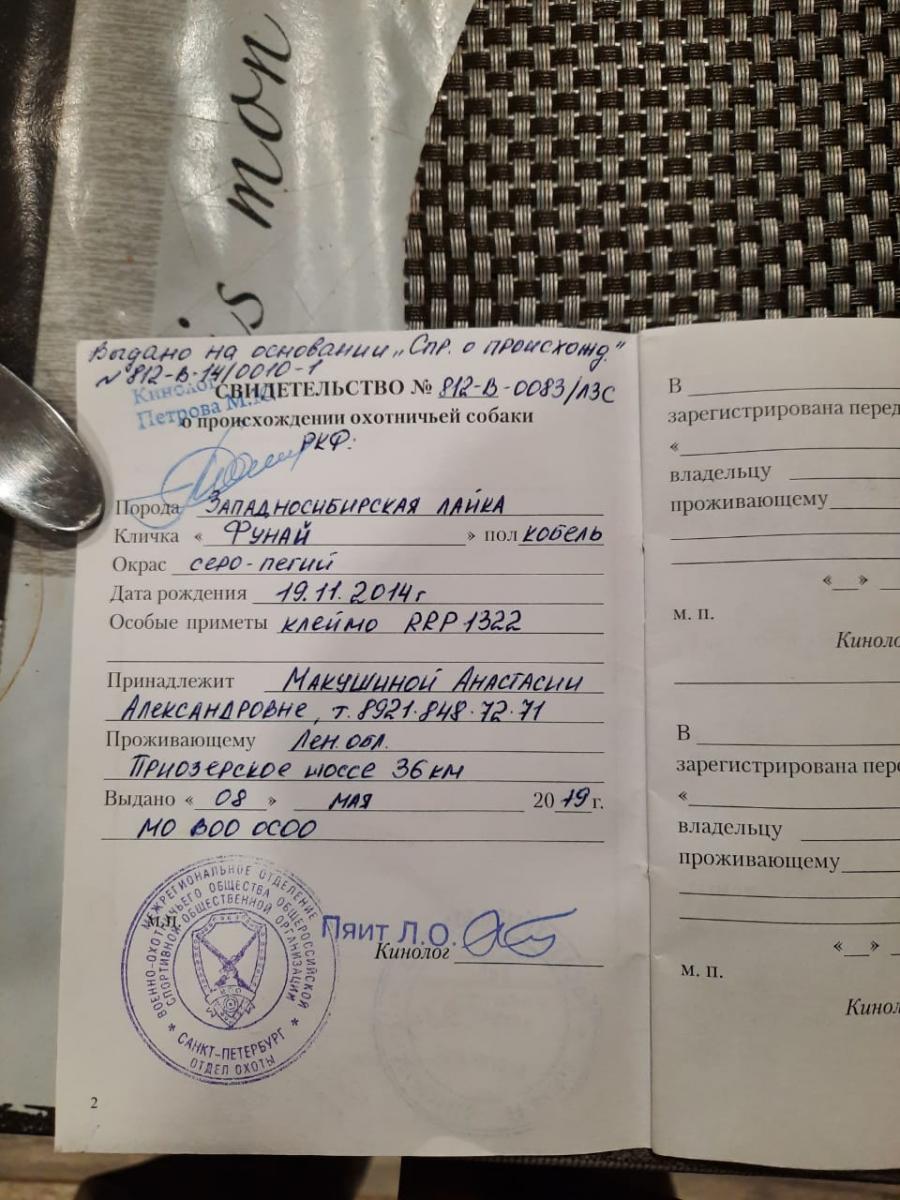 is mon
Выдано на основании „Спр. о происхожд."
№ 812-В-14/0010-1
Кинолог
Петрова М.Ю.
СВИДЕТЕЛЬСТВО № 812-В-0083/ЛЗС
о происхождении охотничьей собаки
РКФ:
Порода Западносибирская лайка
Кличка « Фунай » пол кобель
Окрас серо-пегий
Дата рождения 19.11.2014г
Особые приметы клеймо RRP1322
Принадлежит Макушиной Анастасии
Александровне, т. 8921·848·72·71
Проживающему Лен. обл.
Приозерское шоссе 36 км
Выдано « 08 » мая 2019 г.
МО ВОО ОСОО
м.п.
МЕЖРЕГИОНАЛЬНОЕ ОТДЕЛЕНИЕ
ВОЕННО-ОХОТНИЧЬЕГО ОБЩЕСТВА ОБЩЕРОССИЙСКОЙ
СПОРТИВНОЙ ОБЩЕСТВЕННОЙ ОРГАНИЗАЦИИ
* САНКТ-ПЕТЕРБУРГ *
ОТДЕЛ ОХОТЫ
Пяит Л.О.
Кинолог
2
В
зарегистрирована перед
«
владельцу
проживающему
« »
м. п.
Кинол
В
зарегистрирована пере
«
владельцу
проживающему
« »
м. п.
Кинол